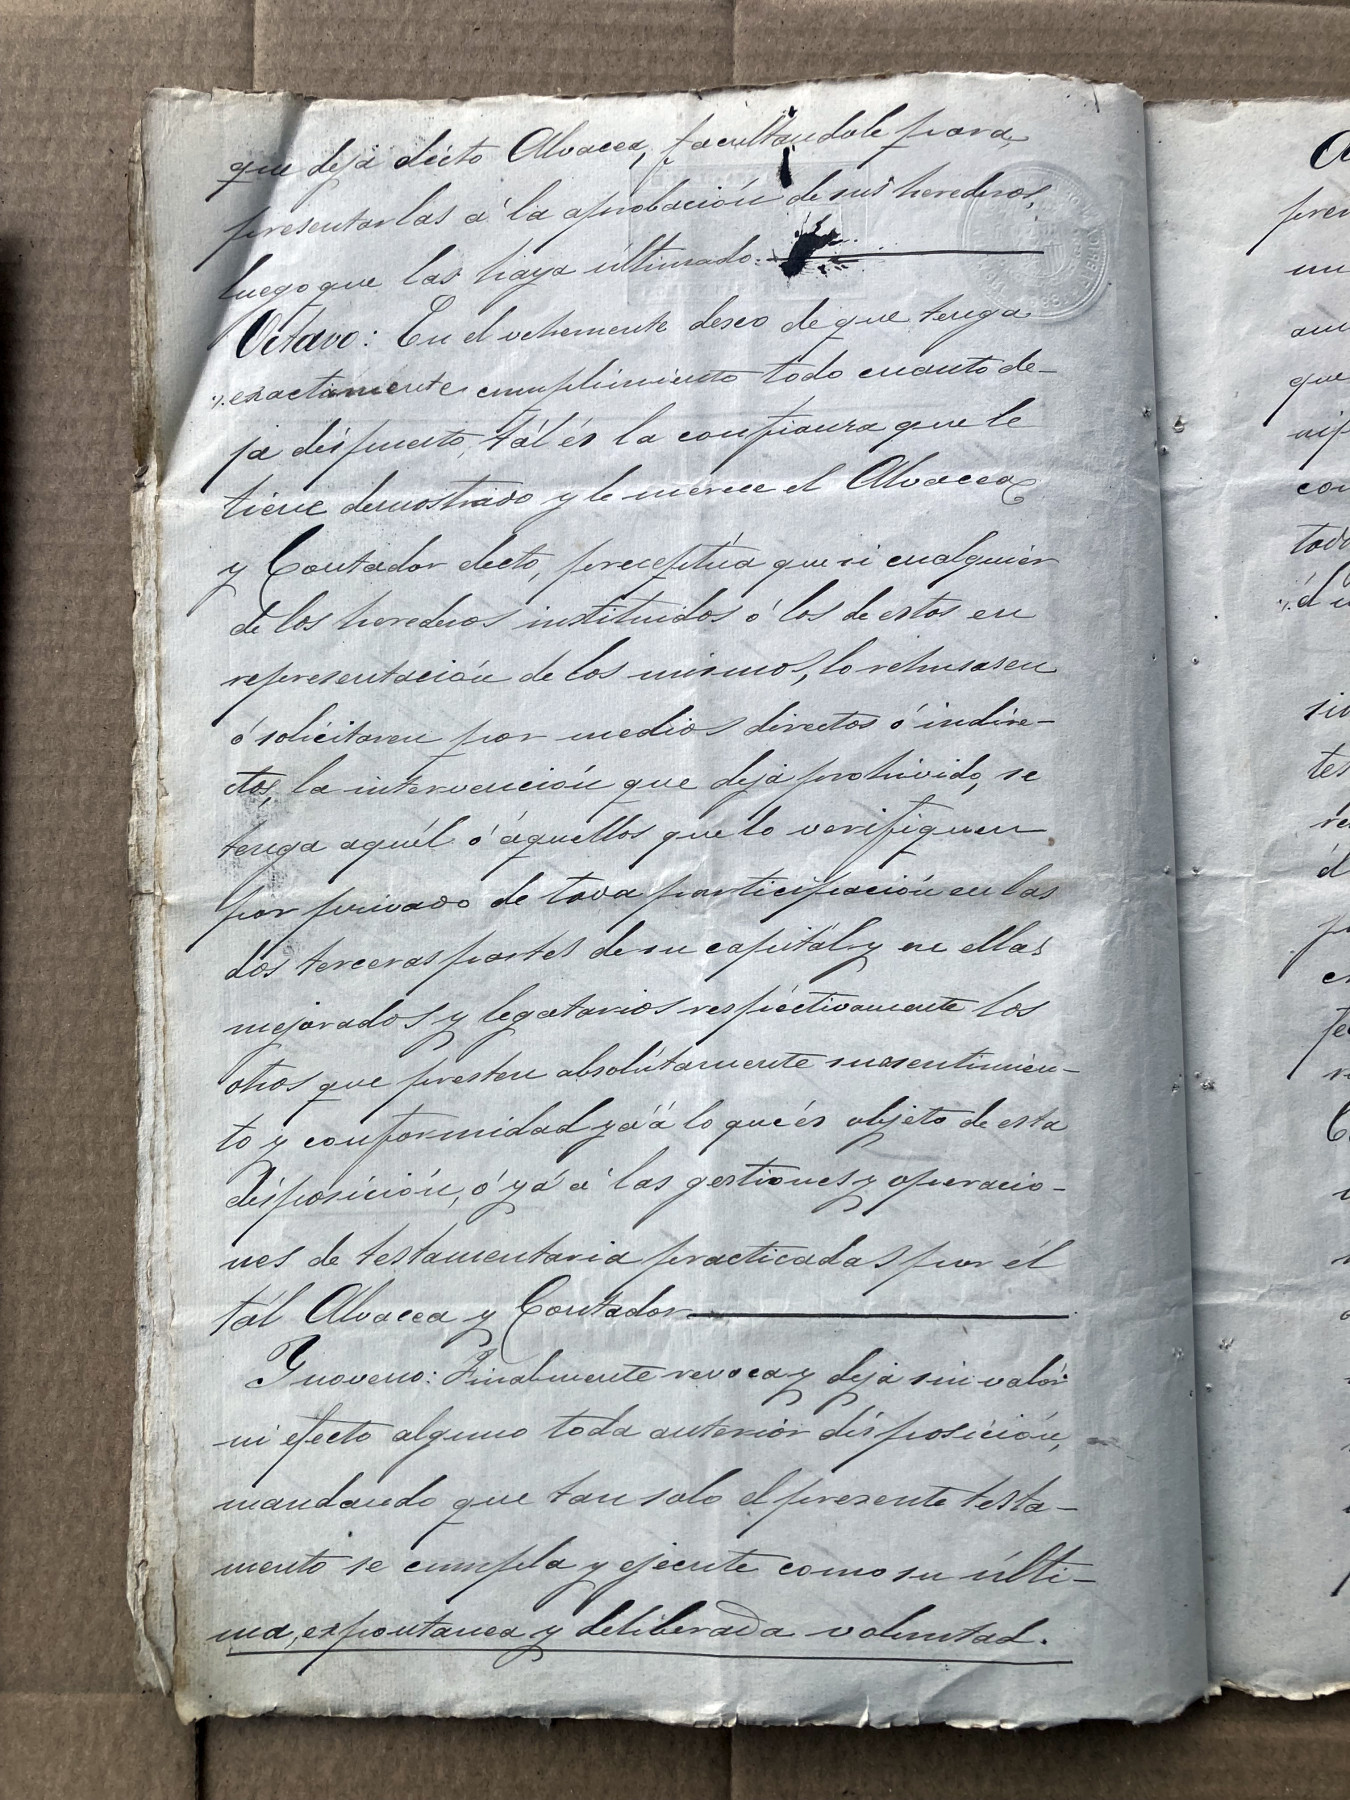 que deja electo Alvacea, facultandole para
presentarlas á la aprobación de sus herederos,
luego que las haya últimado.
Octavo: En el vehemente deseo de que tenga
exactamente cumplimiento todo cuanto de-
ja díspuesto, tál és la confianza que le
tiene demostrado y le merece el Alvacea
y Contador electo, preceptúa que si cualquier
de los herederos instituidos ó los de estos en
representación de los mismos, lo rehusasen
ó solícitaren por medios directos ó indire-
ctos, la intervención que deja prohivido, se
tenga aquél ó áquellos que lo verifiquen
por privado de toda participación en las
dos terceras partes de su capitál y en ellas
mejorados y legatarios respéctivamente los
otros que presten absolútamente su asentimien-
to y conformidad yá á lo que és objeto de esta
disposición, ó yá á las gestiones y operacio-
nes de testamentaria practicadas por él
tál Alvacea y Contador
Y noveno: Finalmente revoca y deja sin valór
ni efecto alguno toda anterior dísposición,
mandando que tan solo el presente testa-
mento se cumpla y ejecute como su últi-
ma, expontanea y deliberada voluntad.